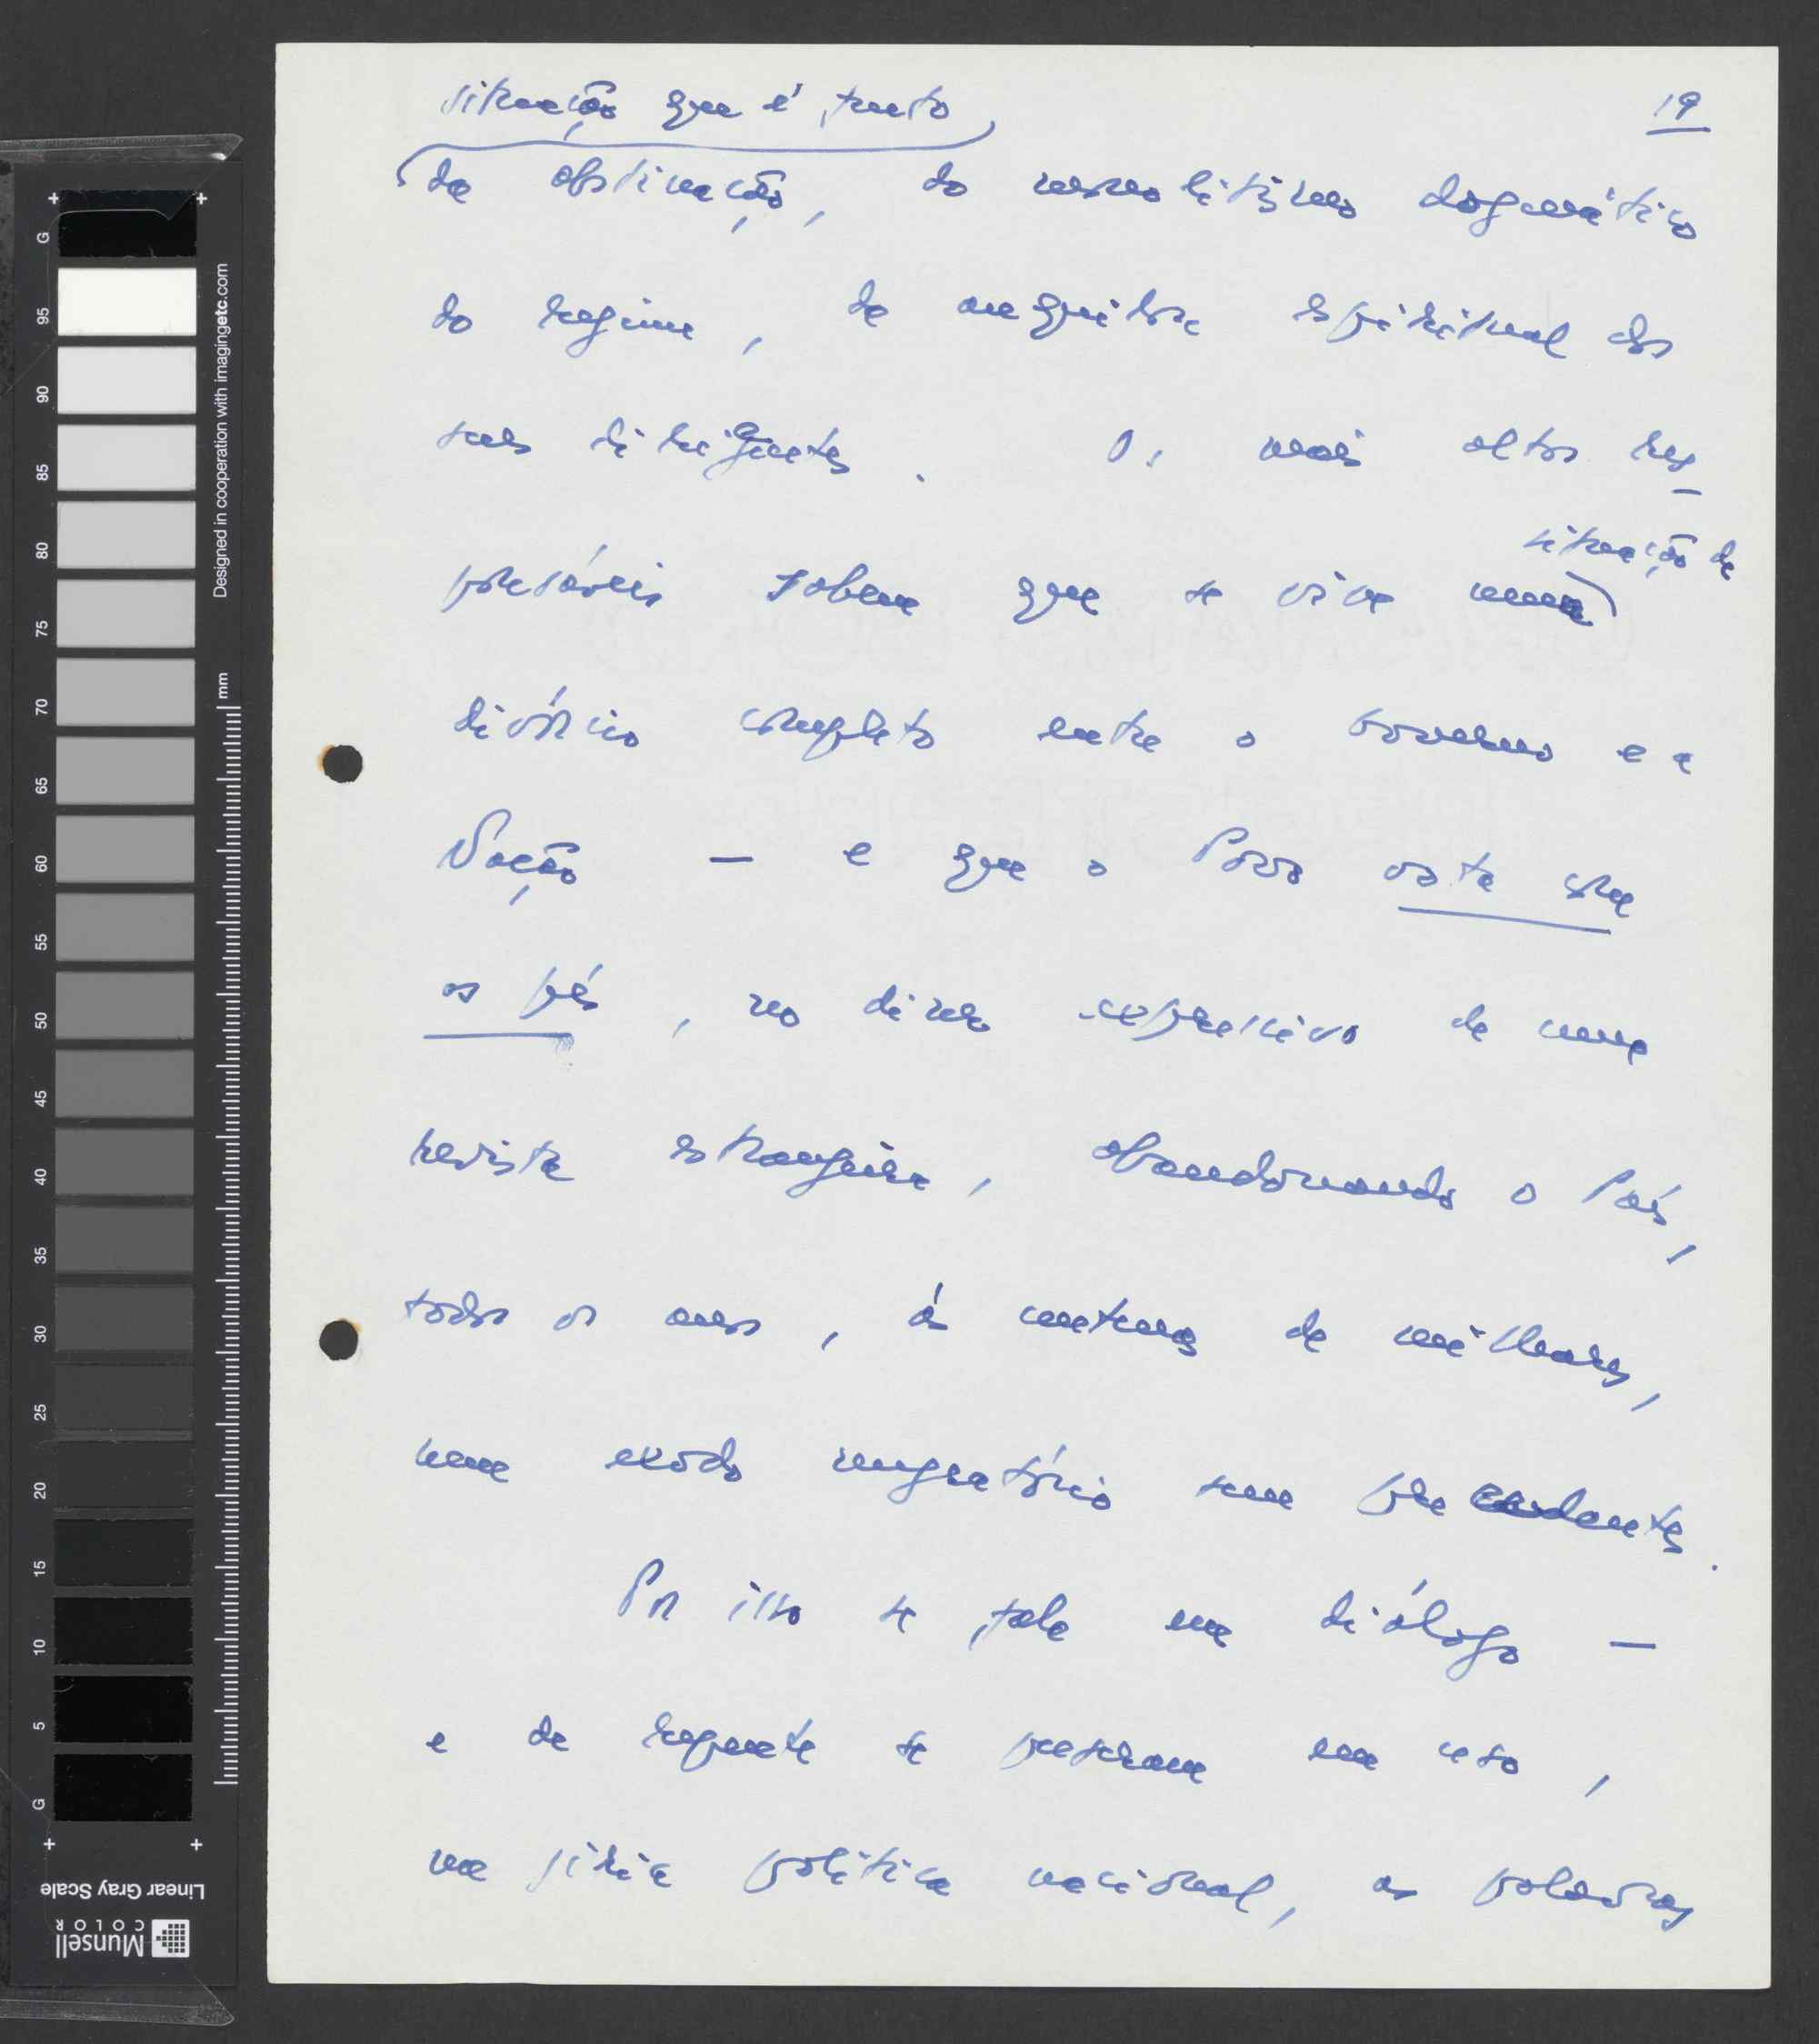 19
situação que é fruto
da obstinação, do monolitismo dogmático
do regime, da esquilose espiritual dos
seus dirigentes. Os mais altos res-
ponsáveis sabem que se vive numa situação de
divórcio completo entre o Governo e a
Nação — e que o Povo vota com
os pés, no dizer expressivo de uma
revista estrangeira, abandonando o País,
todos os anos, às centenas de milhares,
num exodo migratório sem precedentes.
Por isso se fala em diálogo —
e de repente se puseram em uso,
na gíria política nacional, as palavras
G 95 90 85 80 75 70 65 60 55 50 45 40 35 30 25 20 15 10 5 G
Designed in cooperation with imagingetc.com
mm
Linear Gray Scale
Munsell
COLOR